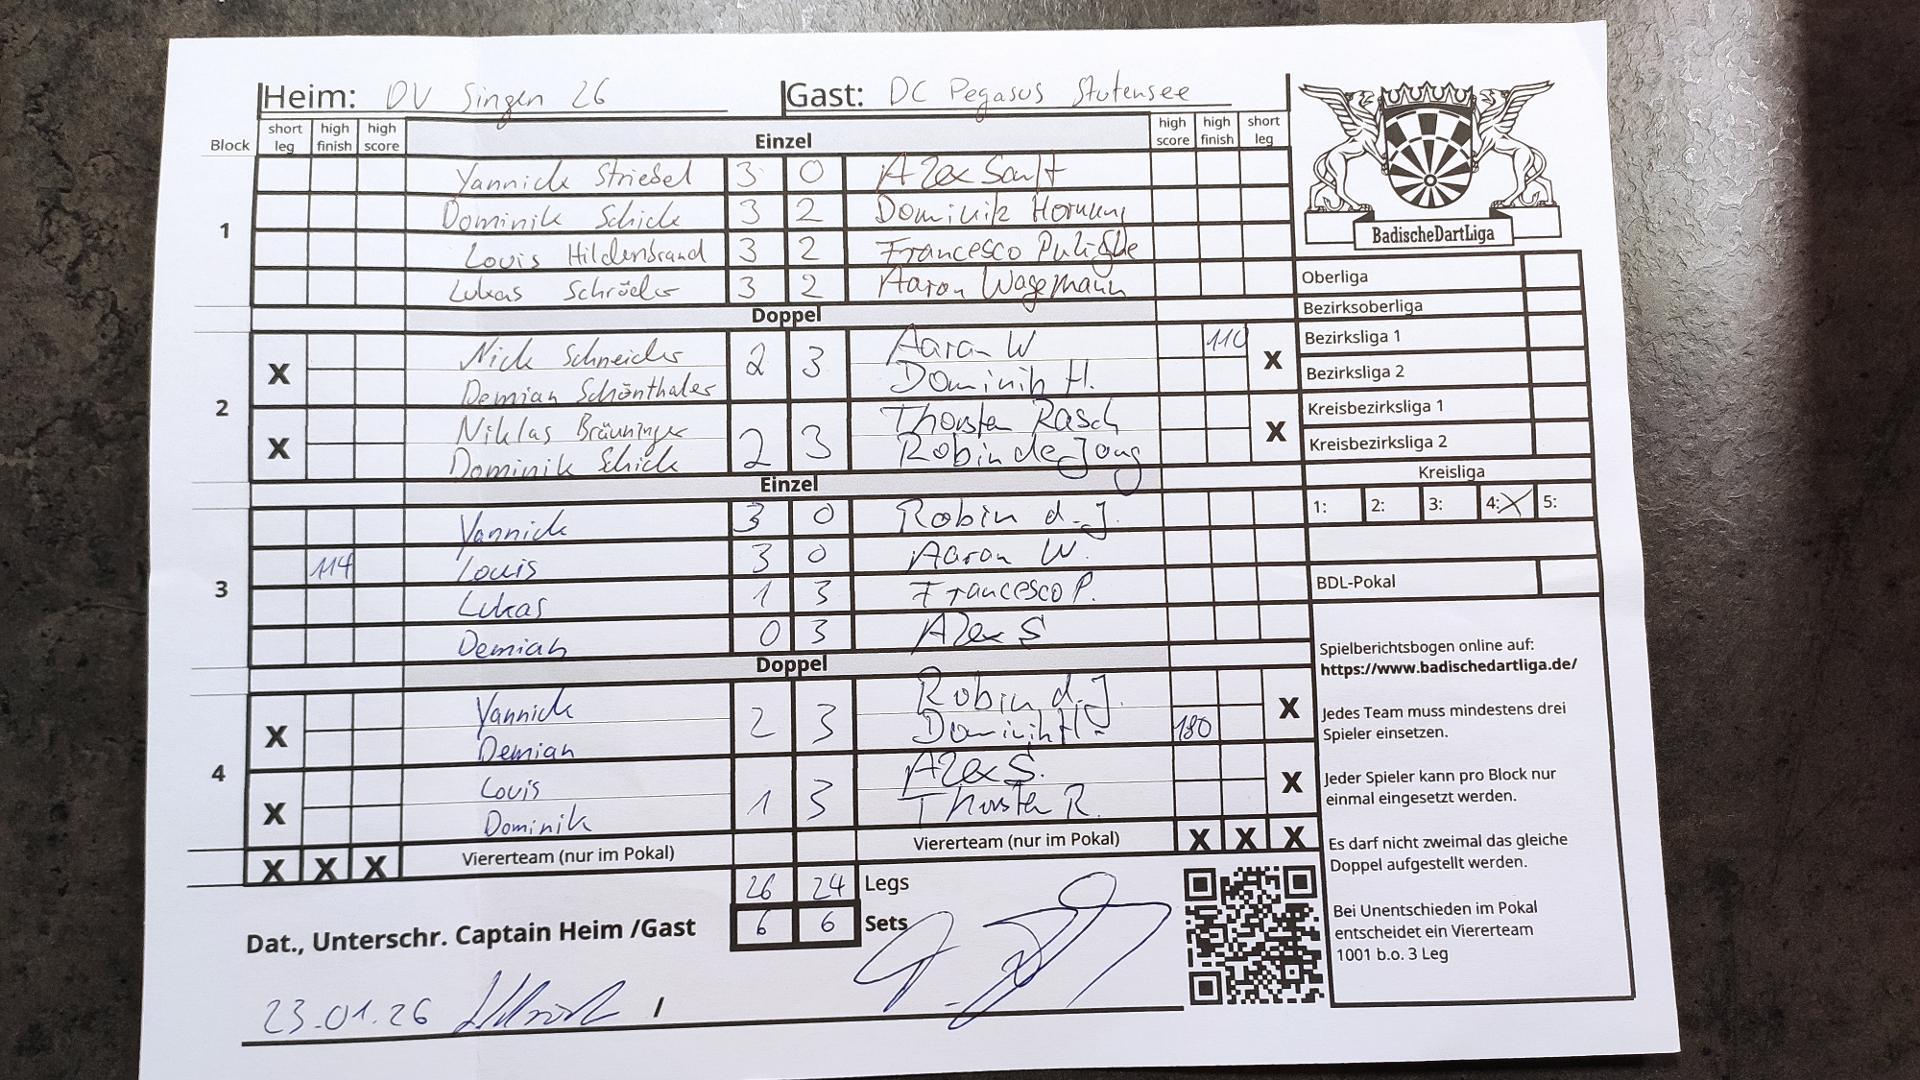 Heim: DV Singen 26 Gast: DC Pegasus Stutensee
Block short leg high finish high score Einzel high score high finish short leg
1
Yannick Striebel 3 0 Alex Sanft
Dominik Schick 3 2 Dominik Hornung
Louis Hildenbrand 3 2 Francesco
Lukas Schröder 3 2 Aaron Wagemann
Doppel
2
X Nick Schneider 2 3 Aaron W 110 X
Demian Schönthaler Dominik H.
X Niklas Bräuninger 2 3 Thorsten Rasch X
Dominik Schick Robin de Jong
Einzel
3
Yannick 3 0 Robin d. J.
114 Louis 3 0 Aaron W.
Lukas 1 3 Francesco P.
Demian 0 3 Alex S
Doppel
4
X Yannick 2 3 Robin d. J. X
Demian Dominik H. 180
X Louis 1 3 Alex S. X
Dominik Thorsten R.
X X X Viererteam (nur im Pokal) Viererteam (nur im Pokal) X X X
26 24 Legs
6 6 Sets
Dat., Unterschr. Captain Heim /Gast
23.01.26 /
BadischeDartLiga
Oberliga
Bezirksoberliga
Bezirksliga 1
Bezirksliga 2
Kreisbezirksliga 1
Kreisbezirksliga 2
Kreisliga
1: 2: 3: 4: X 5:
BDL-Pokal
Spielberichtsbogen online auf:
https://www.badischedartliga.de/
Jedes Team muss mindestens drei
Spieler einsetzen.
Jeder Spieler kann pro Block nur
einmal eingesetzt werden.
Es darf nicht zweimal das gleiche
Doppel aufgestellt werden.
Bei Unentschieden im Pokal
entscheidet ein Viererteam
1001 b.o. 3 Leg